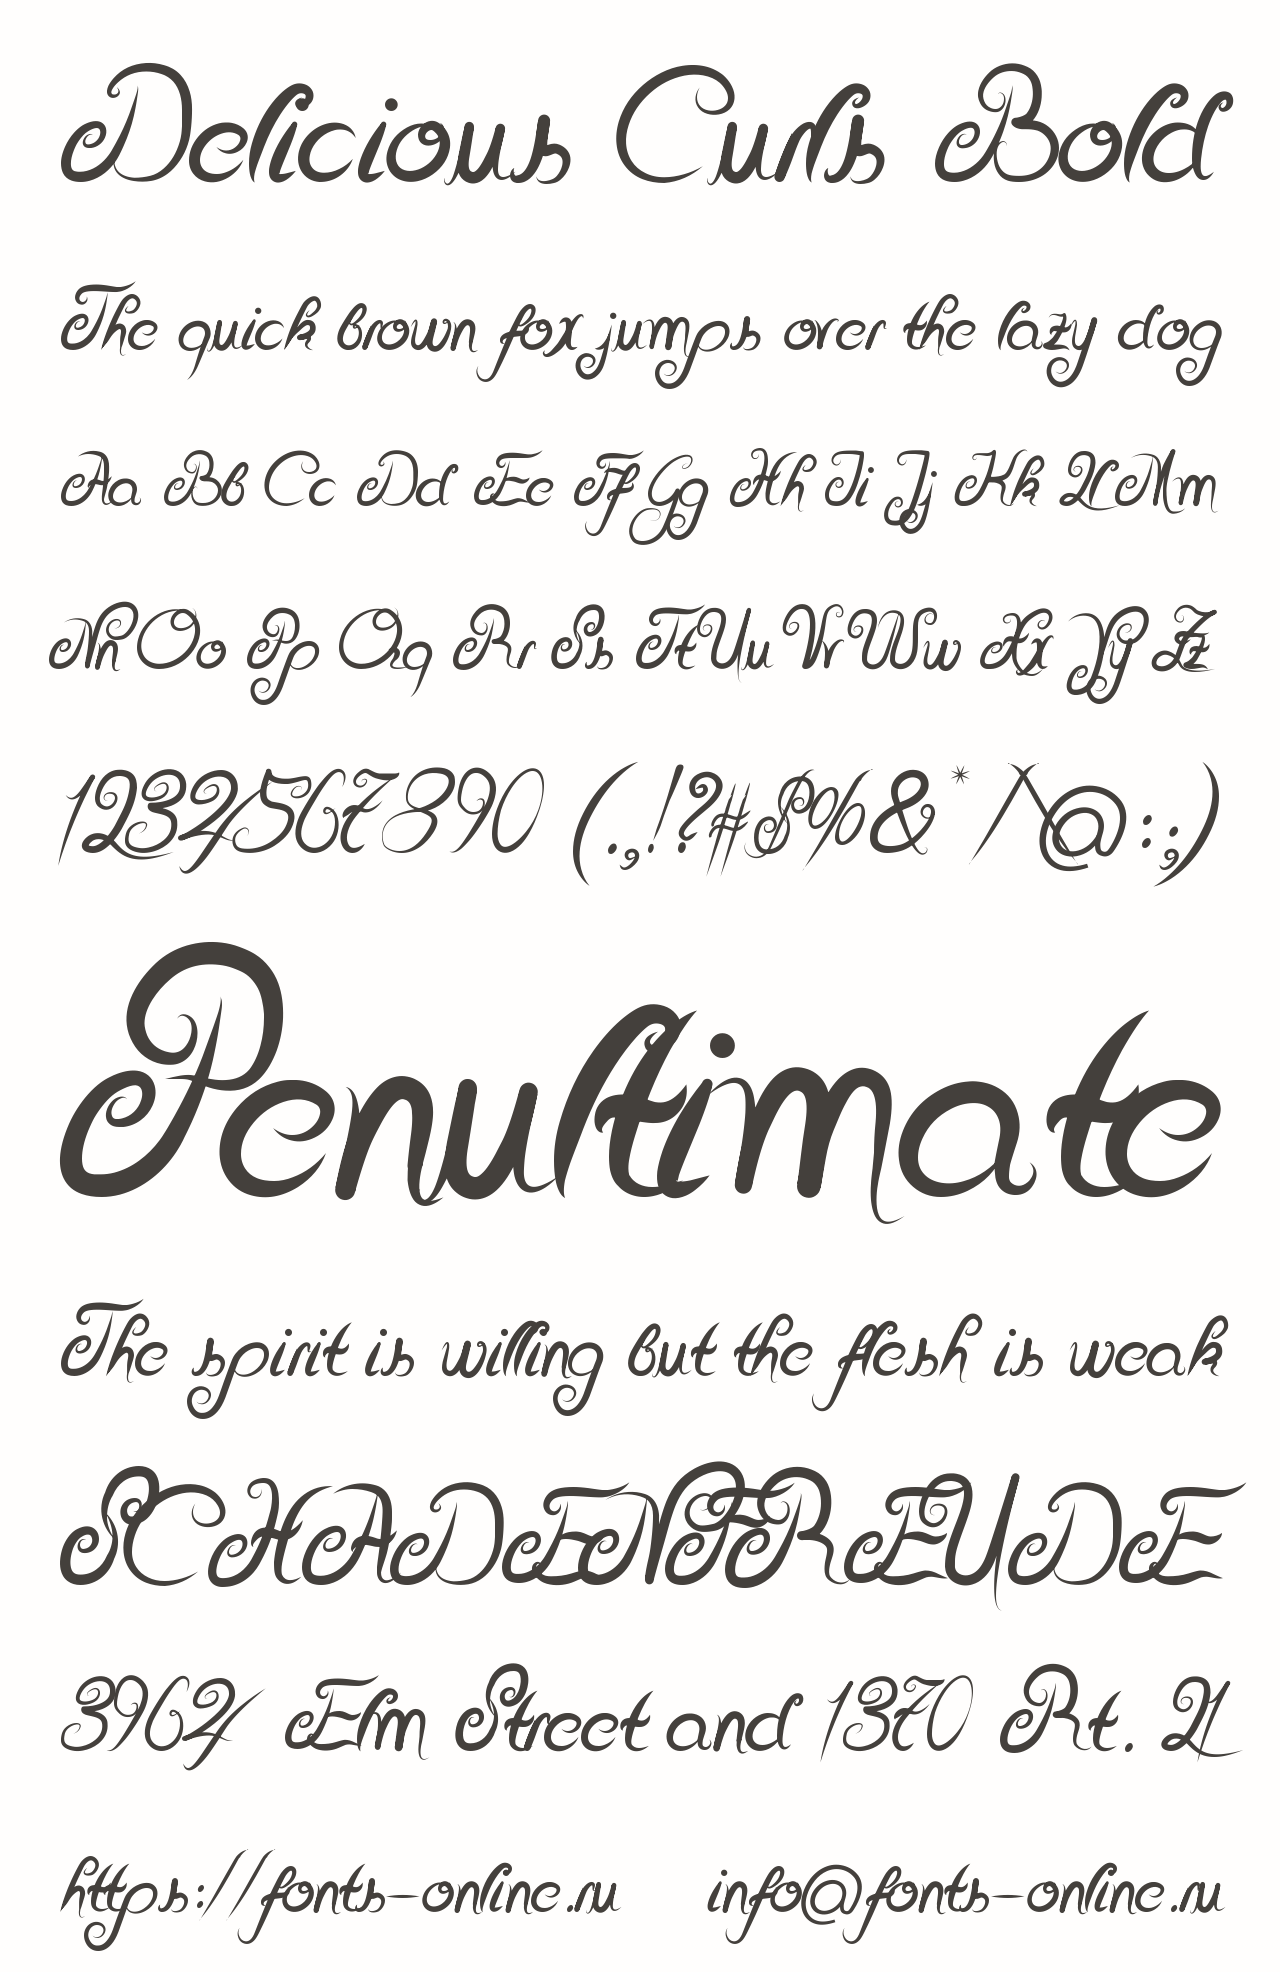 Delicious Curls Bold
The quick brown fox jumps over the lazy dog
Aa Bb Cc Dd Ee Ff Gg Hh Ii Jj Kk Ll Mm
Nn Oo Pp Qq Rr Ss Tt Uu Vv Ww Xx Yy Zz
1234567890 (.,!?#$%& * /\@:;)
Penultimate
The spirit is willing but the flesh is weak
SCHADENFREUDE
3964 Elm Street and 1370 Rt. 21
https://fonts-online.ru info@fonts-online.ru